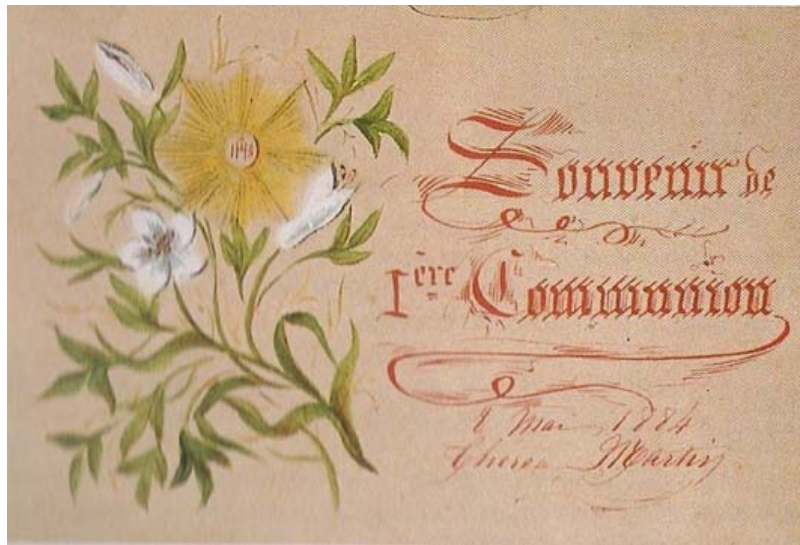 IHS
Souvenir de
1ère Communion
8 Mai 1884
Theresa Martin